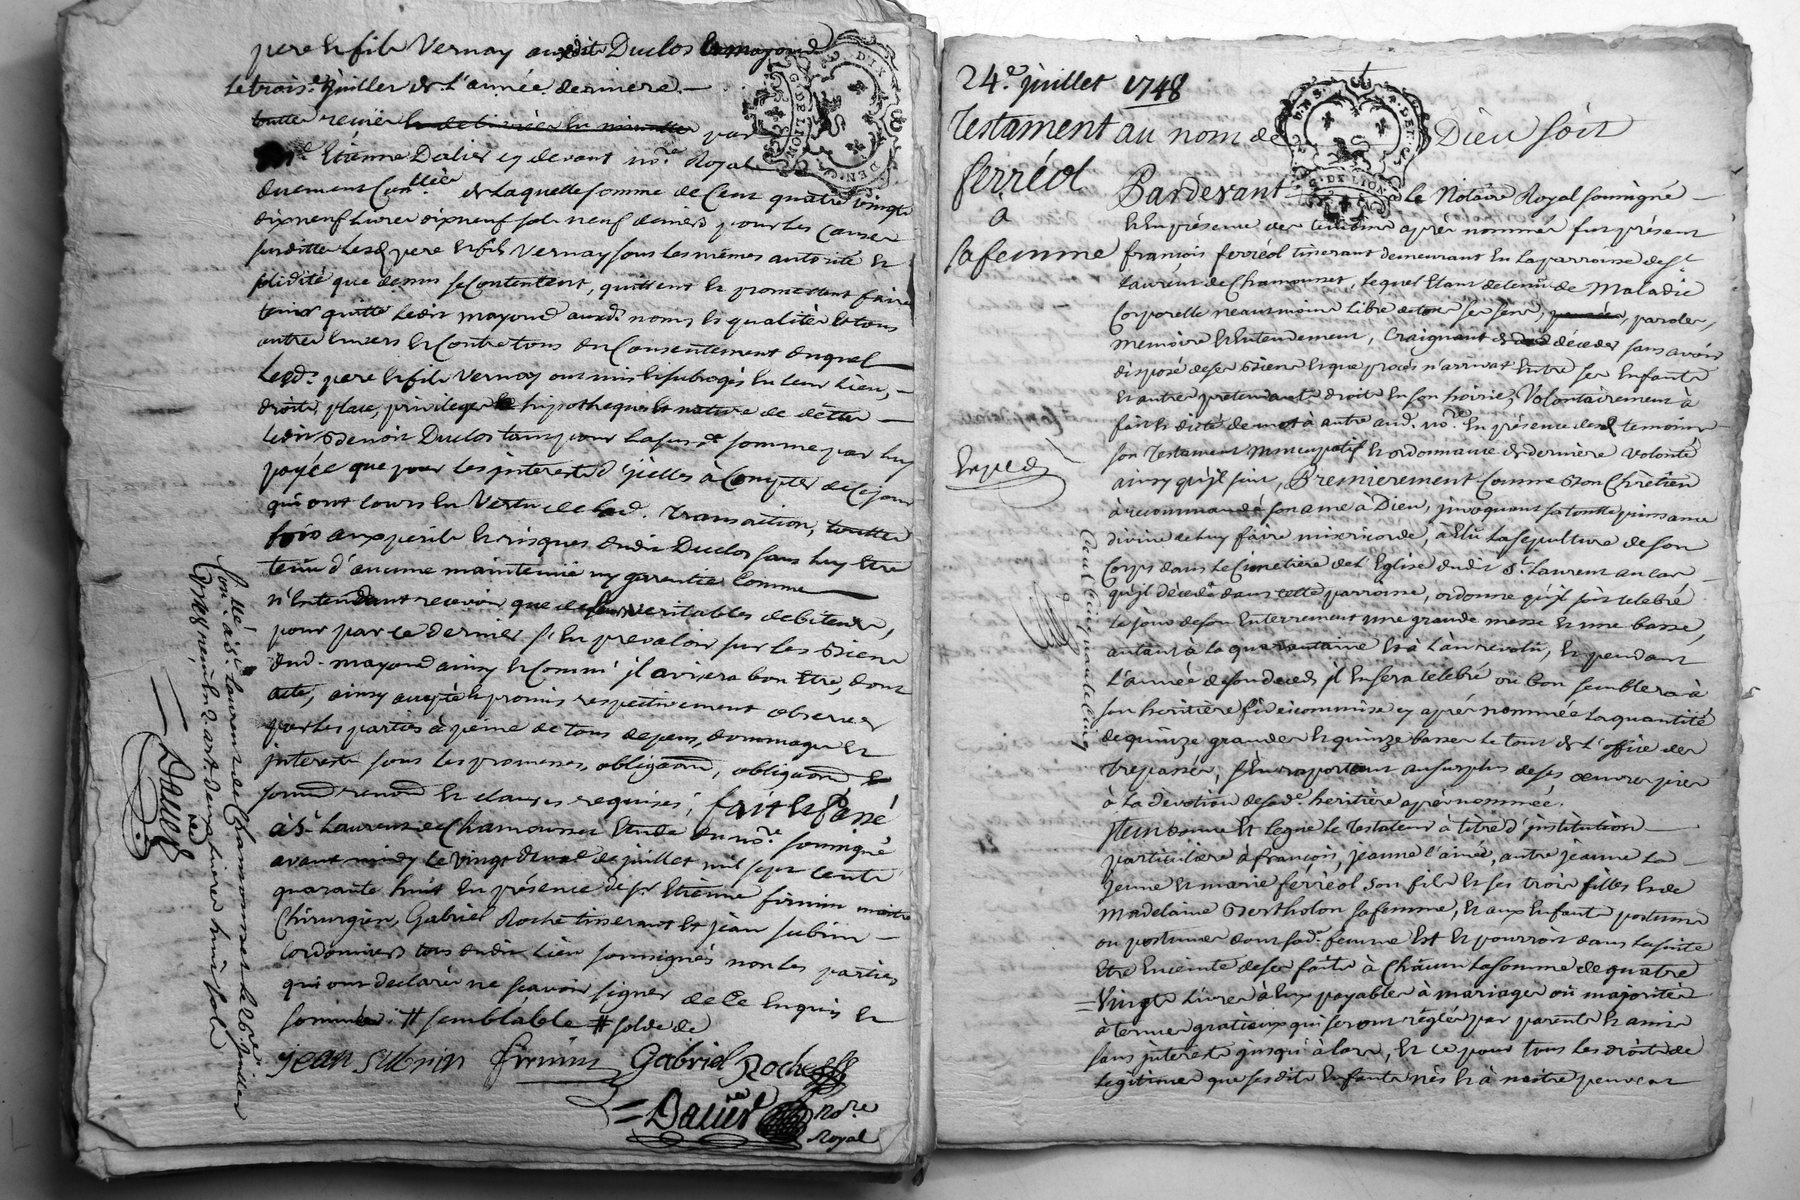 pere et fils Vernay auxdits Duclos et mayoud
le trois.e juillet de l'année derniere.
reçüe par
m.e Etienne Dalier cy devant no.re Royal
duement Con.llée de laquelle somme de Cent quatre vingts
dixneuf livres dixneuf sols neuf deniers pour les causes
susdittes lesd. pere et fils Vernay sous les mêmes autorité et
solidité que dessus se Contentent, quittent et promettent faire
tenir quitte ledit mayoud auxd. noms et qualités et tous
autres Envers et Contre tous du Consentement duquel
lesd. pere et fils Vernay ont mis et subrogés en leur lieu,
droits, place, privileges hipotheques et nature de dette
ledit Benoit Duclos tant pour la susd.te somme par luy
payée que pour les interests d'ycelles à Compter de ce jour
qui ont cours en Vertu de lad. transaction, toutte
fois aux perils et risques dudit Duclos sans luy être
tenu d'aucune maintenüe ny garentie Comme
n'Entendant recevoir que de leurs veritables debiteurs,
pour par ce dernier s'En prevaloir sur les Biens
dud. mayoud ainsy et Comm' il avisera bon Etre, dont
acte, ainsy accepté et promis respectivement observer
par les parties à peine de tous depens, dommages et
interests sous les promesses, obligaõns, obligaõns et
soumõns renonõns et clauses requises; fait et Passé
à S.t Laurent de Chamousset Etude du no.re soussigné
avant midy le vingt deux de juillet mil sept cents
quarante huit En présence de s.r Etienne firmin maitre
Chirurgien, Gabriel Roche tisserant et jean subrin
Cordonniers tous dudit lieu soussignés non les parties
qui ont declarés ne sçavoir signer de Ce Enquis et
sommés. # semblable # solde de
jean subrin firmin Gabriel Roche
= Dalier no.re Royal
Con.llé à S.t Laurent de Chamousset le 26.e juillet
1748 reçu deux livres huit sols
= Dalier
24.e juillet 1748
Testament
ferréol
à
sa femme
Exped.
au nom de Dieu soit
Pardevant le Notaire Royal soussigné
et En présence des temoins après nommés fut présent
françois ferréol tisserant demeurant En la parroisse de S.t
Laurent de Chamousset, lequel Etant detenü de Maladie
Corporelle neantmoins libre de tous ses sens, parole,
memoire et Entendement, Craignant de déceder sans avoir
disposé de ses Biens et que procès n'arrivat Entre ses Enfants
et autres pretendants droits En son hoirie, Volontairement à
fait et dicté de mot à autre aud. no.re En présence desd. temoins
son Testament nuncupatif et ordonnance de derniere volonté
ainsy qu'jl suit, Premierement Comme Bon Chrêtien
à recommandé son ame à Dieu, jnvoquant sa toutte puissance
divine de luy faire misericorde, à Elû la sepulture de son
Corps dans le Cimetiere de l'Eglise dudit S.t Laurent au cas
qu'jl décede dans cette parroisse, ordonne qu'jl soit celebré
le jour de son Enterrement une grande messe et une basse,
autant à la quarantaine et à l'an revolu, et pendant
l'année de son deceds jl En sera celebré où bon semblera à
son heritière fideicommise cy après nommée la quantité
de quinze grandes et quinze basses le tout de l'office des
trepassés, s'En raportant au surplus de ses œuvres pies
à la dévotion de sad.e heritière après nommée.
Jtem donne et legue le Testateur à titre d'institution
particuliere à françois, jeanne l'ainée, autre jeanne la
jeune et marie ferréol son fils et ses trois filles et de
Madelaine Bertholon sa femme, et aux Enfants postume
ou postumes dont sad.e femme Est et pourroit dans la suite
Etre Enceinte de ses faits à Chacun la somme de quatre
= Vingts livres à Eux payables à mariages où majorités
à termes gratieux qui seront réglés par parents et amis
sans interests jusqu'alors, et ce pour tous les droits de
legitimes que sesdits Enfants nés et à naitre peuvent